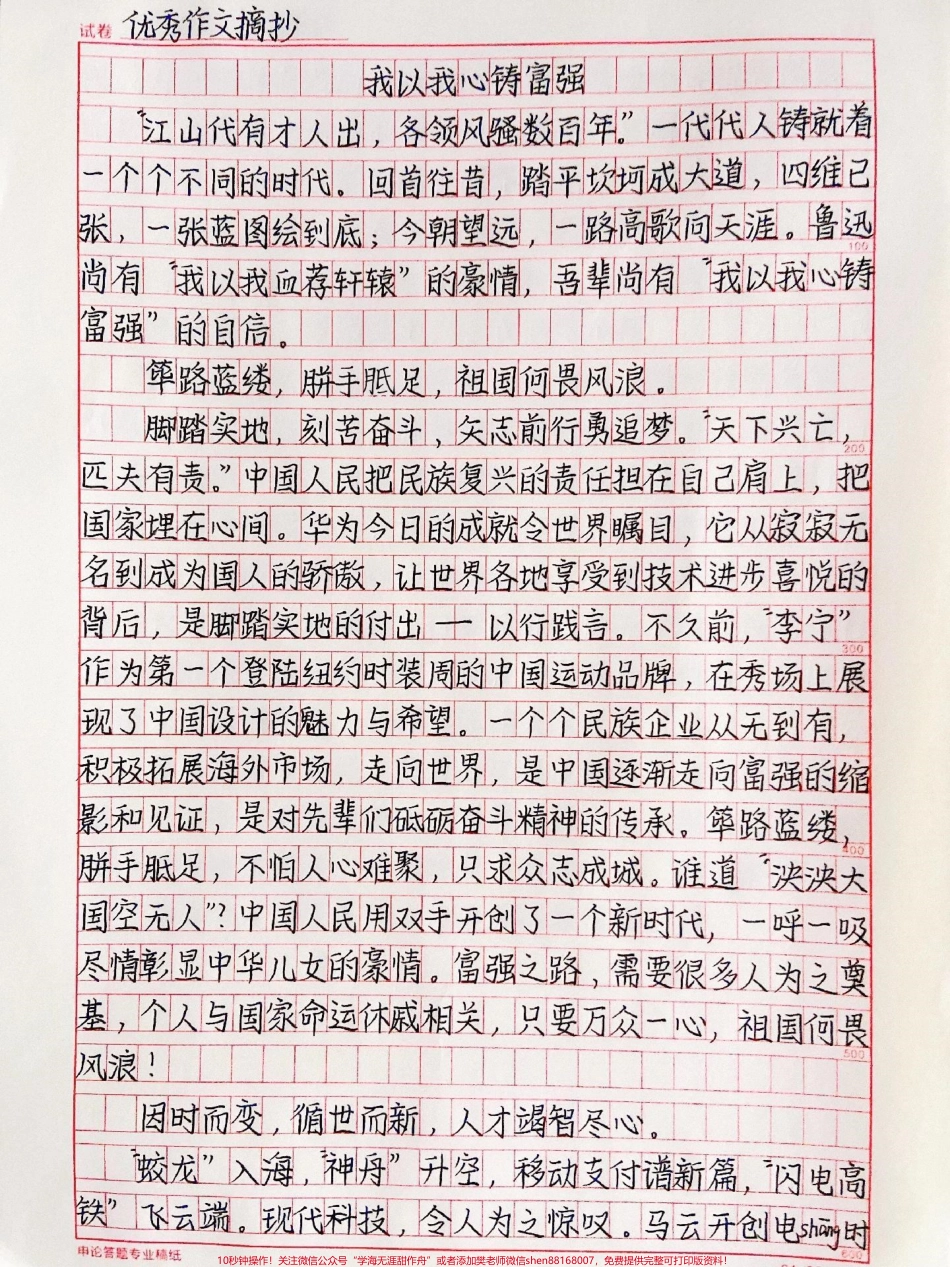 试卷 优秀作文摘抄
我以我心铸富强
“江山代有才人出，各领风骚数百年。”一代代人铸就着
一个个不同的时代。回首往昔，踏平坎坷成大道，四维已
张，一张蓝图绘到底；今朝望远，一路高歌问天涯。鲁迅
100
尚有“我以我血荐轩辕”的豪情，吾辈尚有“我以我心铸
富强”的自信。
筚路蓝缕，胼手胝足，祖国何畏风浪。
脚踏实地，刻苦奋斗，矢志前行勇追梦。“天下兴亡，
200
匹夫有责。”中国人民把民族复兴的责任担在自己肩上，把
国家埋在心间。华为今日的成就令世界瞩目，它从寂寂无
名到成为国人的骄傲，让世界各地享受到技术进步喜悦的
背后，是脚踏实地的付出——以行践言。不久前，“李宁”
300
作为第一个登陆纽约时装周的中国运动品牌，在秀场上展
现了中国设计的魅力与希望。一个个民族企业从无到有，
积极拓展海外市场，走向世界，是中国逐渐走向富强的缩
影和见证，是对先辈们砥砺奋斗精神的传承。筚路蓝缕，
400
胼手胝足，不怕人心难聚，只求众志成城。谁道“泱泱大
国空无人”？中国人民用双手开创了一个新时代，一呼一吸
尽情彰显中华儿女的豪情。富强之路，需要很多人为之奠
基，个人与国家命运休戚相关，只要万众一心，祖国何畏
500
风浪！
因时而变，循世而新，人才竭智尽心。
“蛟龙”入海，“神舟”升空，移动支付谱新篇，“闪电高
铁”飞云端。现代科技，令人为之惊叹。马云开创电shāng时
600
申论答题专业稿纸
10秒钟操作！关注微信公众号“学海无涯甜作舟”或者添加樊老师微信shen88168007，免费提供完整可打印版资料！